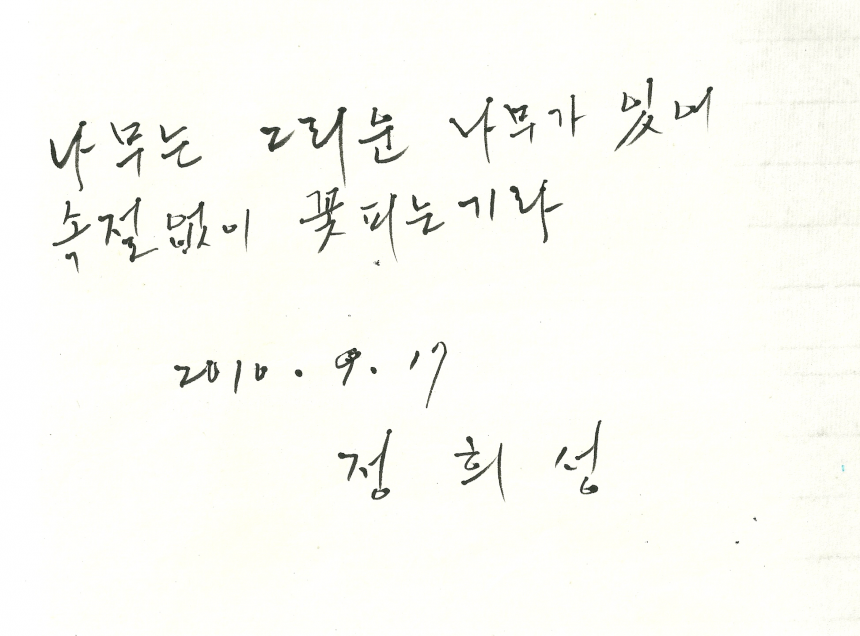 나무는 그리운 나무가 있어
속절없이 꽃피는기라
2010. 9. 17
정 희 성